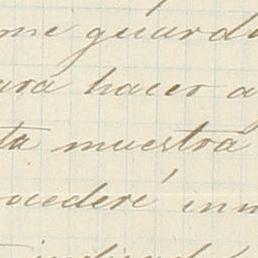 me guarda
ara hacer a
ta muestra
ocederé inm